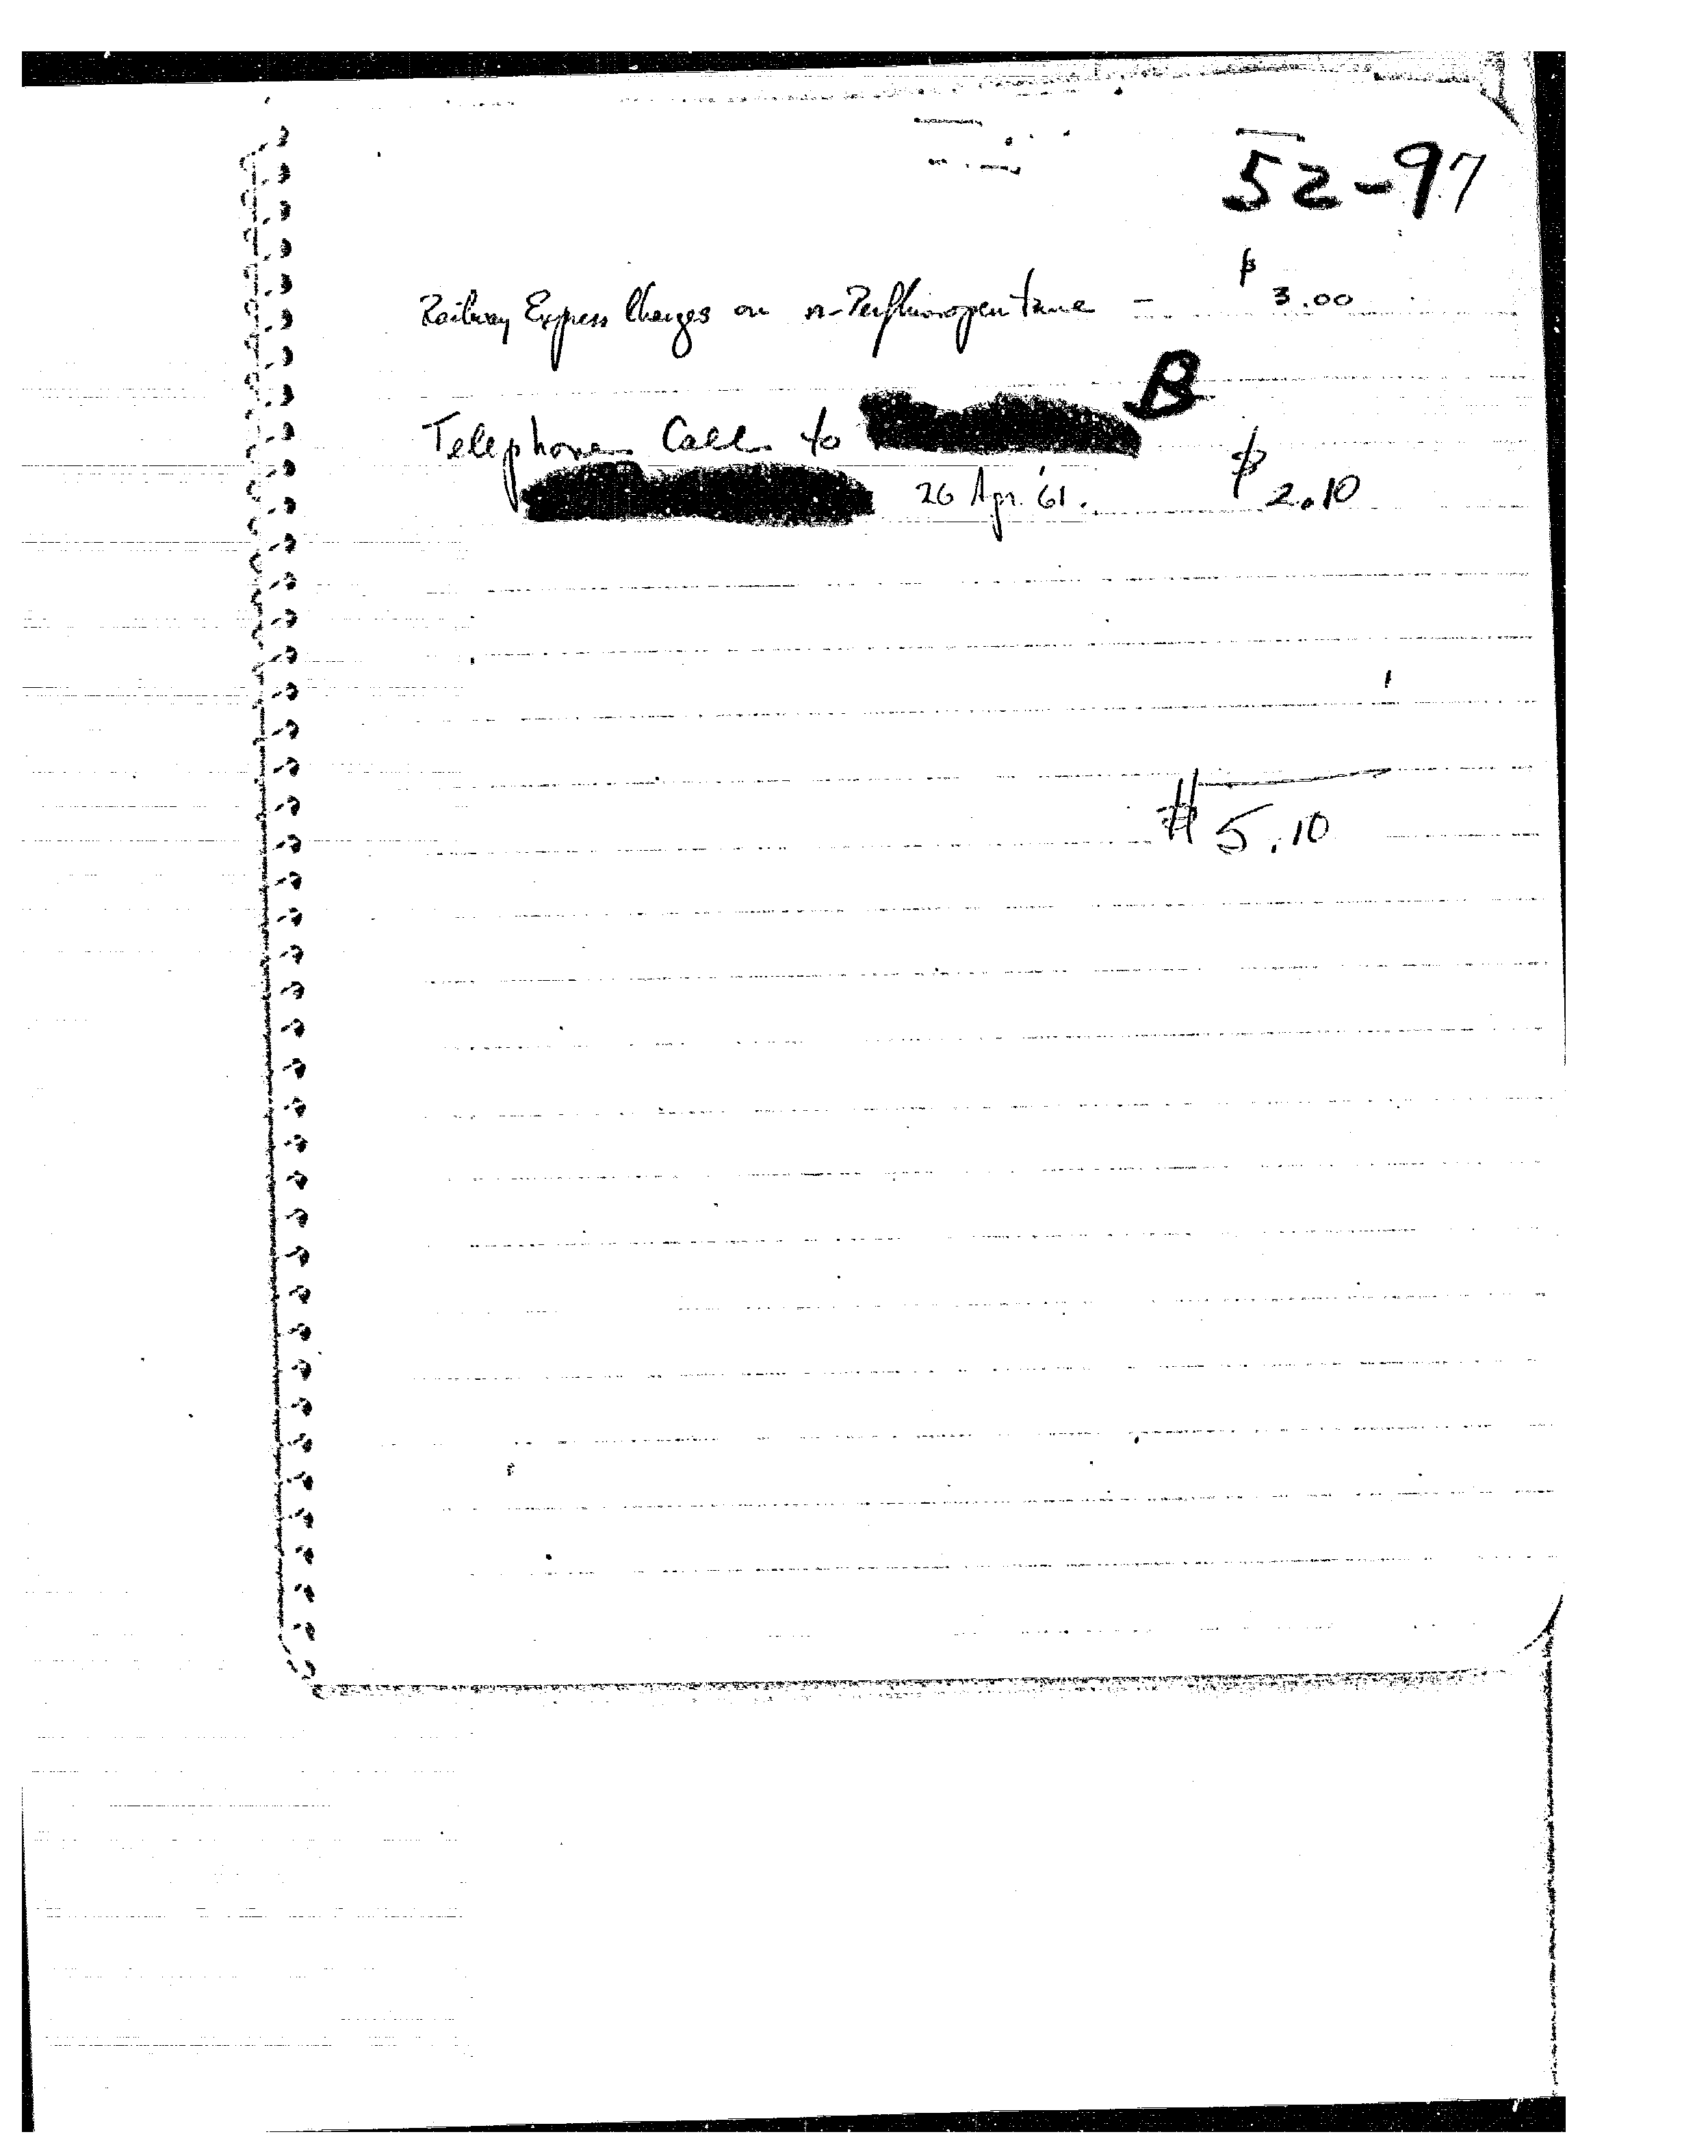 52-97
$
Railway Express Charges on n-Perfluoropentane - 3.00
B
Telephone Call to
$
26 Apr. '61. 2.10
$ 5.10